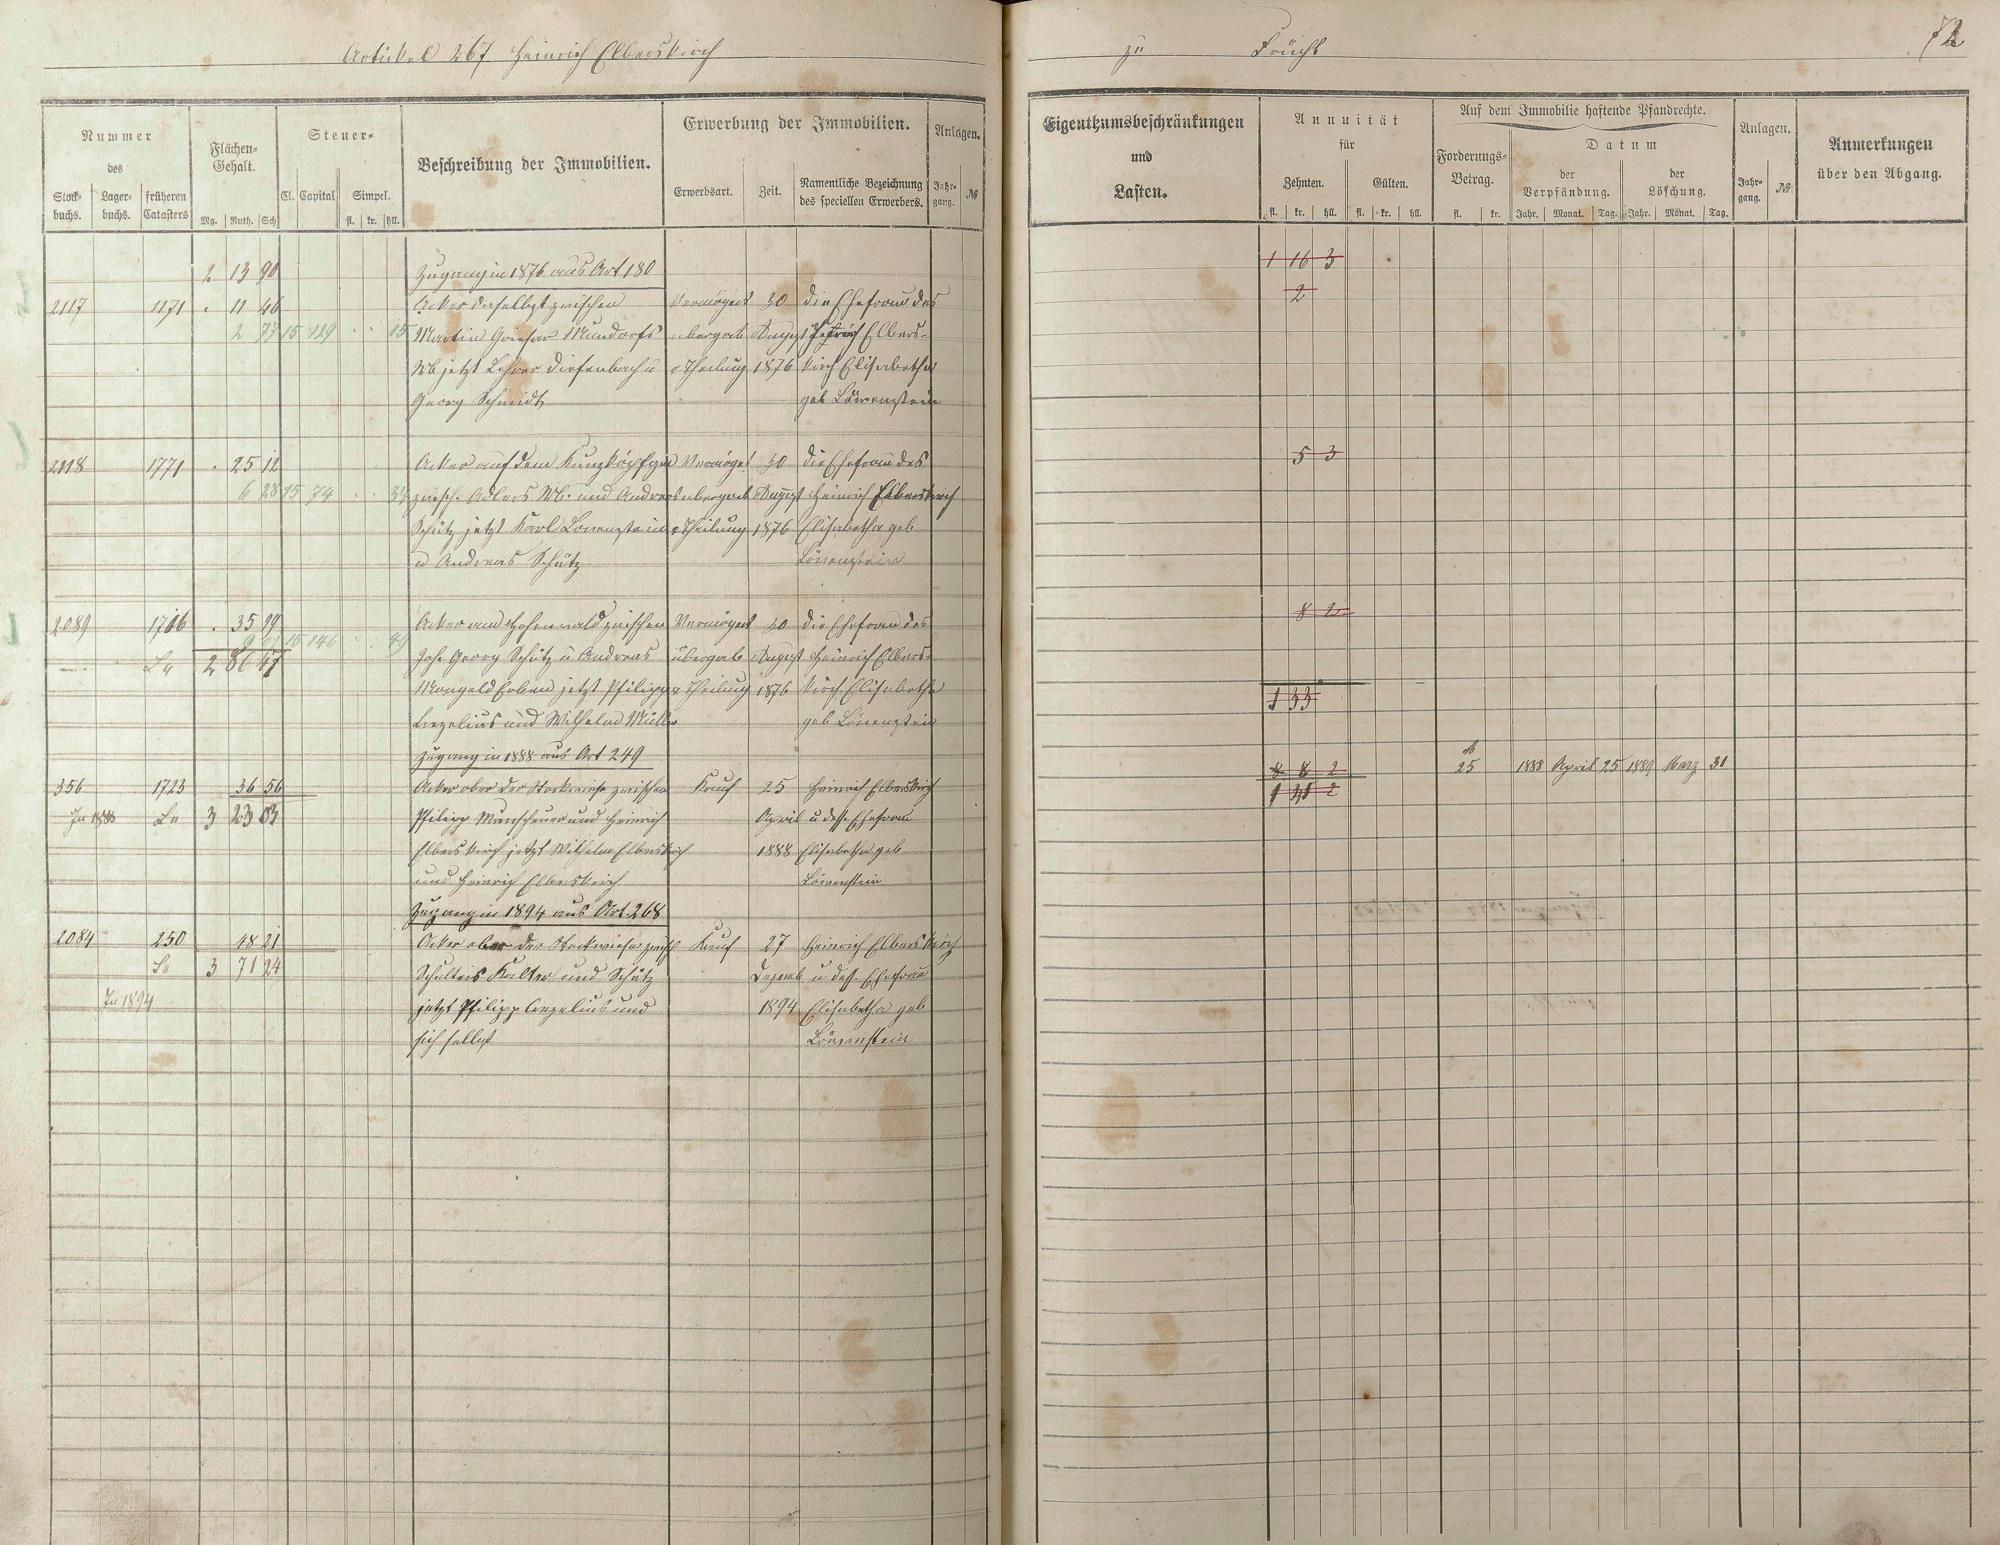 Artikel 267 Heinrich Elberskirch
zu Frücht
72
Nummer
des
Stock-
buchs.
Lager-
buchs.
früheren
Catasters
Flächen-
Gehalt.
Mg. Ruth. Sch
Steuer-
Cl. Capital
Simpel.
fl. kr. hll.
Beschreibung der Immobilien.
Erwerbung der Immobilien.
Erwerbsart. Zeit.
Namentliche Bezeichnung
des speciellen Erwerbers.
Anlagen.
Jahr-
gang.
№
Eigenthumsbeschränkungen
und
Lasten.
Annuität
für
Zehnten. Gülten.
fl. kr. hll. fl. kr. hll.
Auf dem Immobilie haftende Pfandrechte.
Forderungs-
Betrag.
fl. kr.
Datum
der
Verpfändung.
der
Löschung.
Jahr. Monat. Tag. Jahr. Monat. Tag.
Anlagen.
Jahr-
gang.
№
Anmerkungen
über den Abgang.
2 13 90 Zugang in 1876 aus Art 180 1 16 3
2117 1171 11 46 Acker daselbst zwischen Vermögens 30 die Ehefrau des 2
2 77 15 129 15 Martin Mundorfs übergab August Heinrich Elbers-
Wb jetzt Lehrer Diefenbach u & Theilung 1876 kirch Elisabetha
Georg Schmidt geb Löwenstein
2118 1771 25 12 Acker auf dem 30 die Ehefrau des 5 3
6 28 15 74 zwisch. Adlers Wb. und Andreas übergab August Heinrich Elberskirch
Schütz jetzt Karl Löwenstein & Theilung 1876 Elisabetha geb
u Andreas Schütz Löwenstein
2089 1706 35 99 Acker am Hohenwald zwischen Vermögens 30 die Ehefrau des 8 2
15 146
Sa 2 86 47 Joh. Georg Schütz u Andreas übergab August Heinrich Elbers-
Erben jetzt Philipp & Theilung 1876 kirch Elisabetha 1 33
und Wilhelm Müller geb Löwenstein
Zugang in 1888 aus Art 249
356 1723 36 56 Acker ober der Stockwiese zwischen Kauf 25 Heinrich Elberskirch 8 2 25 1888 April 25 1889 März 31
In 1888 Sa 3 23 03 Philipp und Heinrich April u dess. Ehefrau 1 41 2
Elberskirch jetzt Wilhelm Elberskirch 1888 Elisabetha geb
und Heinrich Elberskirch Löwenstein
Zugang in 1894 aus Art. 268
2084 250 48 21 Acker ober der Stockwiese zwisch Kauf 27 Heinrich Elberskirch
Sa 3 71 24 und Schütz Dezemb u dess. Ehefrau
In 1894 jetzt Philipp und 1894 Elisabetha geb
sich selbst Löwenstein